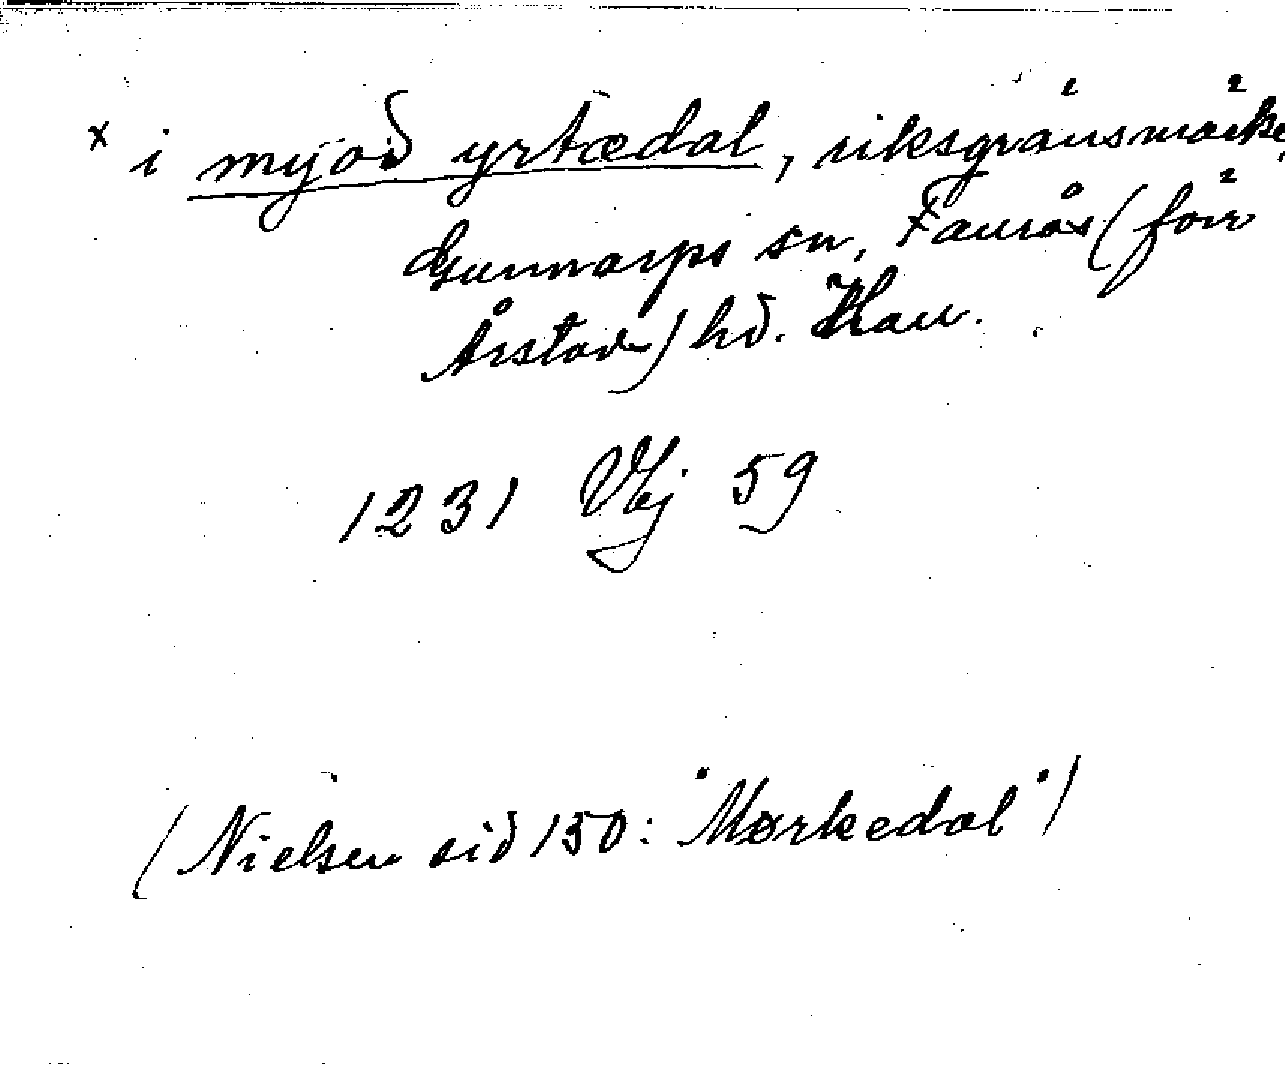 x i myoð yrtædal, riksgränsmärke,
Gunnarps sn, Faurås (förr
Årstads) hd. Hall.
1231 Vbj 59
(Nielsen sid 150: "Mørkedal")